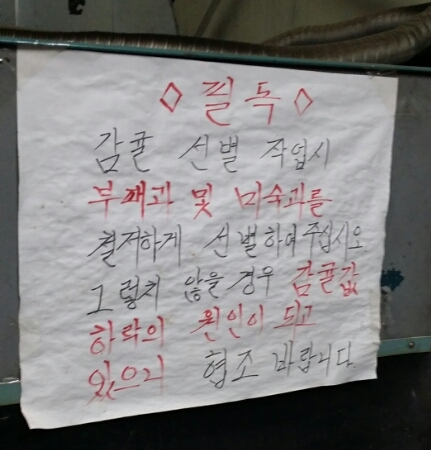 ◇ 필독 ◇
감귤 선별 작업시
부패과 및 미숙과를
결저하게 선별하여 주십시오
그렇치 않을 경우 감귤값
하락의 원인이 되고
있으니 협조 바랍니다.